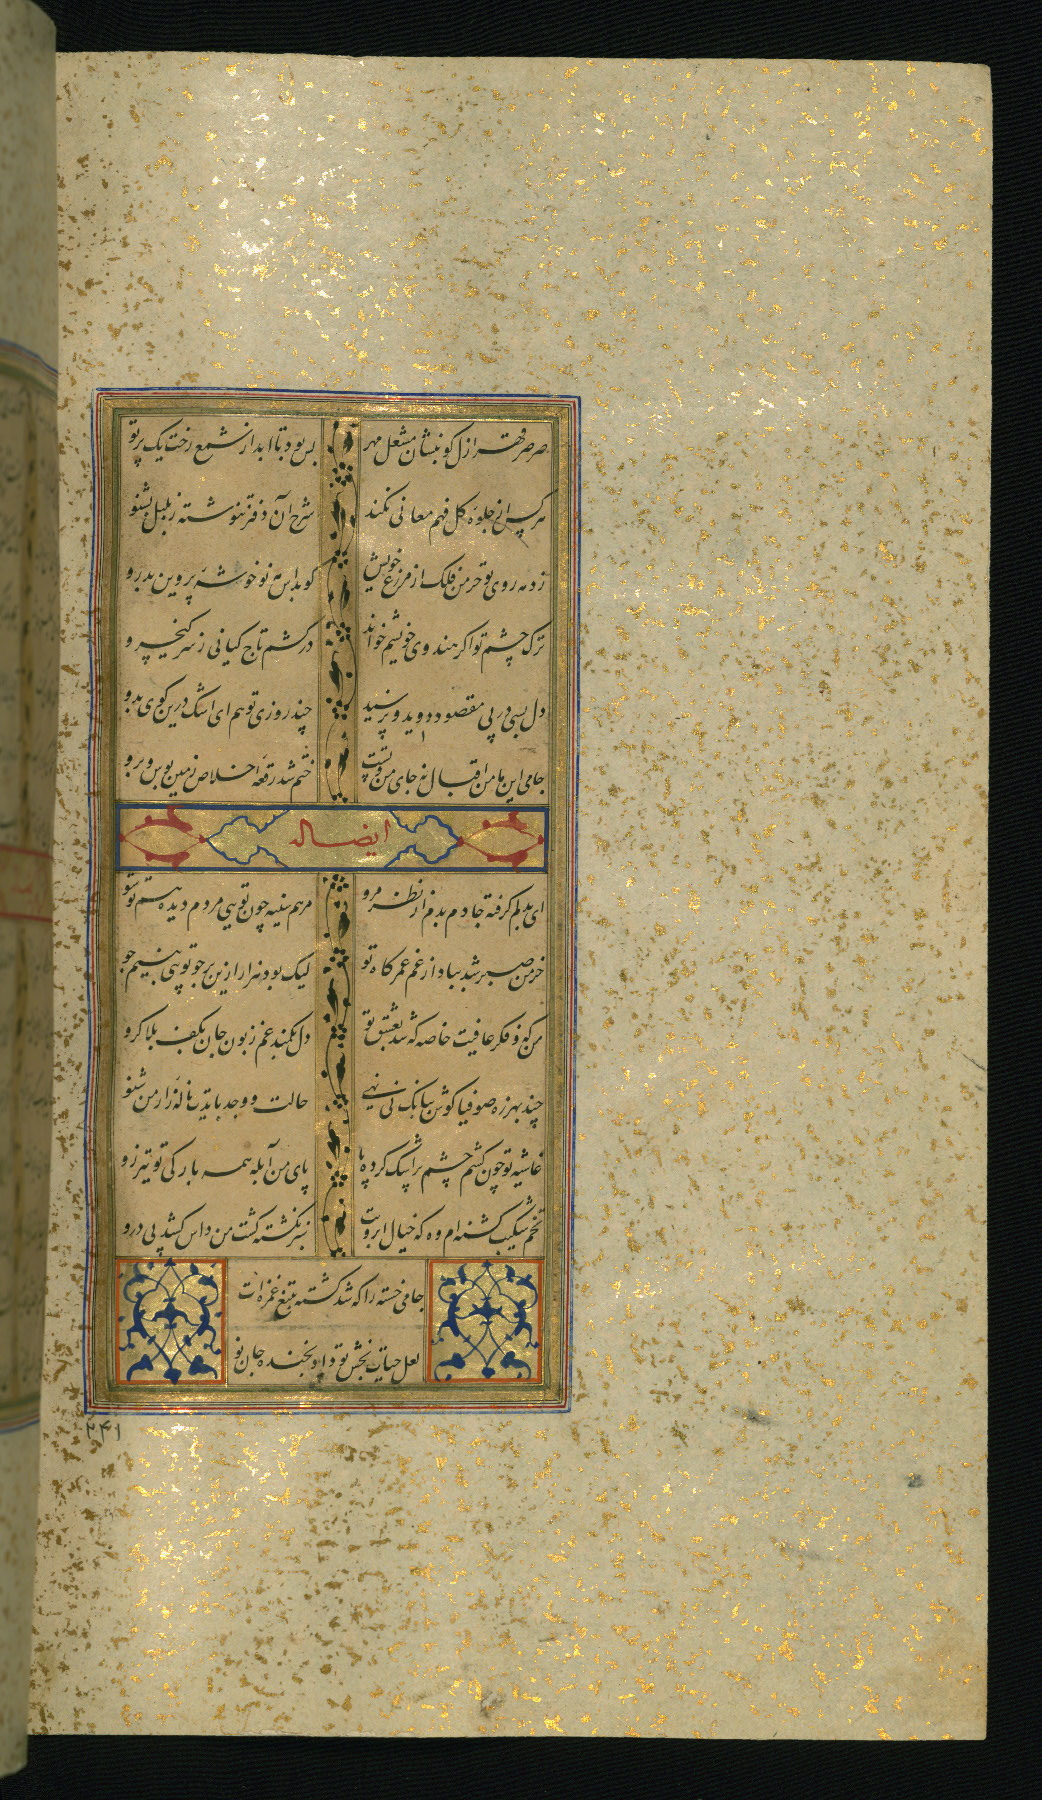 صرصر قهر ازل کو بنشان مشعل مهر بس بود تا ابد از شمع رخت یک پرتو
هر کس از جلوه کل فهم معانی نکند شرح آن دفتر ننوشته ز بلبل بشنو
زد مه روی تو خرمن فلک از مزرع خویش کو بداس مه نو خوشه پروین بدرو
ترک چشم تو اکر هندوی خویشم خواند درکشم تاج کیانی ز سر کیخسرو
دل بسی در پی مقصود دوید و نرسید چند روزی تو هم ای اشک درین کوی بدو
جامی این نامه اقبال نه جای من و تست ختم شد رقعه اخلاص زمین بوس و برو
ایضاله
ای بدلم کرفته جا دم بدم از نظر مرو مرهم سینه چون تویی مردم دیده هم تو شو
خرمن صبر شد بباد از غم عمر کاه تو لیک بود هزار ازین بر جو تو بنیم جو
من که و فکر عافیت خاصه که شد بعشق تو دل بکمند غم زبون جان بکف بلا کرو
چند بهرزه صوفیا کوش ببانک نی نهی حالت و وجد بایدت ناله زار من شنو
غاشیه تو چون کشم چشم براشک کرده پا پای من آبله همه بارکی تو تیز رو
تخم شکیب کشته ام وه که خیال ابرویت سبز نکشته کشت من داس کشد پی درو
جامی خسته را که شد کشته بتیغ غمزه ات
لعل حیات بخش تو داد بخنده جان نو
۲۴۱